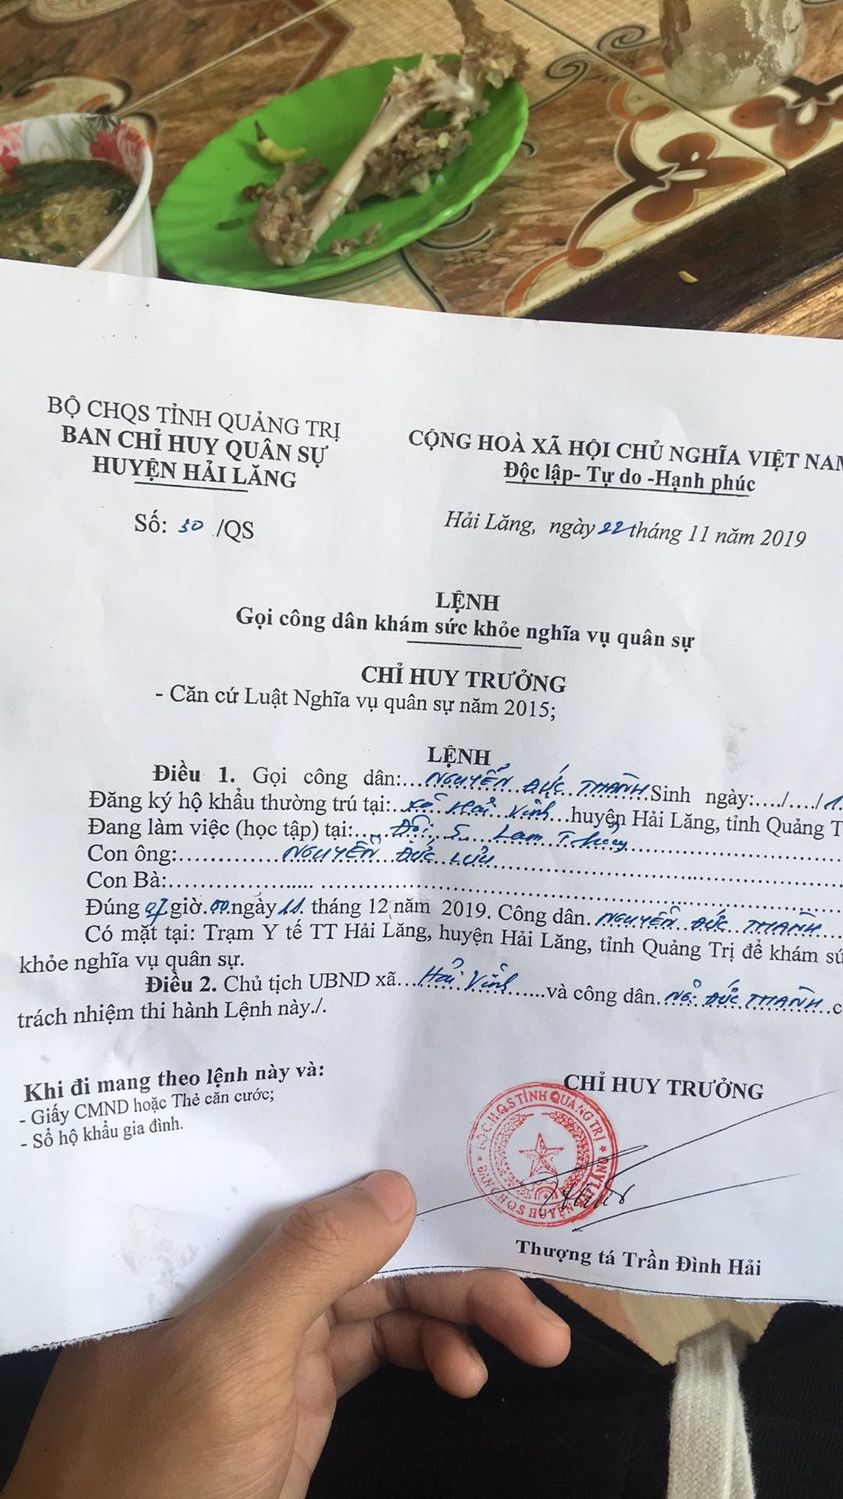 BỘ CHQS TỈNH QUẢNG TRỊ
BAN CHỈ HUY QUÂN SỰ
HUYỆN HẢI LĂNG
Số: 30 /QS
CỘNG HOÀ XÃ HỘI CHỦ NGHĨA VIỆT NAM
Độc lập- Tự do -Hạnh phúc
Hải Lăng, ngày 22 tháng 11 năm 2019
LỆNH
Gọi công dân khám sức khỏe nghĩa vụ quân sự
CHỈ HUY TRƯỞNG
- Căn cứ Luật Nghĩa vụ quân sự năm 2015;
LỆNH
Điều 1. Gọi công dân:...NGUYỄN ĐỨC THÀNH Sinh ngày:..../..../1
Đăng ký hộ khẩu thường trú tại:..xã Hải Vĩnh...huyện Hải Lăng, tỉnh Quảng T
Đang làm việc (học tập) tại:....Đội 5 Lam Thủy
Con ông:..............NGUYỄN ĐỨC LƯU
Con Bà:
Đúng 07 giờ.00.ngày 11. tháng 12 năm 2019. Công dân. NGUYỄN ĐỨC THÀNH
Có mặt tại: Trạm Y tế TT Hải Lăng, huyện Hải Lăng, tỉnh Quảng Trị để khám sứ
khỏe nghĩa vụ quân sự.
Điều 2. Chủ tịch UBND xã...Hải Vĩnh......và công dân. NG ĐỨC THÀNH..c
trách nhiệm thi hành Lệnh này./.
Khi đi mang theo lệnh này và:
- Giấy CMND hoặc Thẻ căn cước;
- Sổ hộ khẩu gia đình.
CHỈ HUY TRƯỞNG
BỘ CHQS TỈNH QUẢNG TRỊ
BAN CHQS HUYỆN HẢI LĂNG
Thượng tá Trần Đình Hải